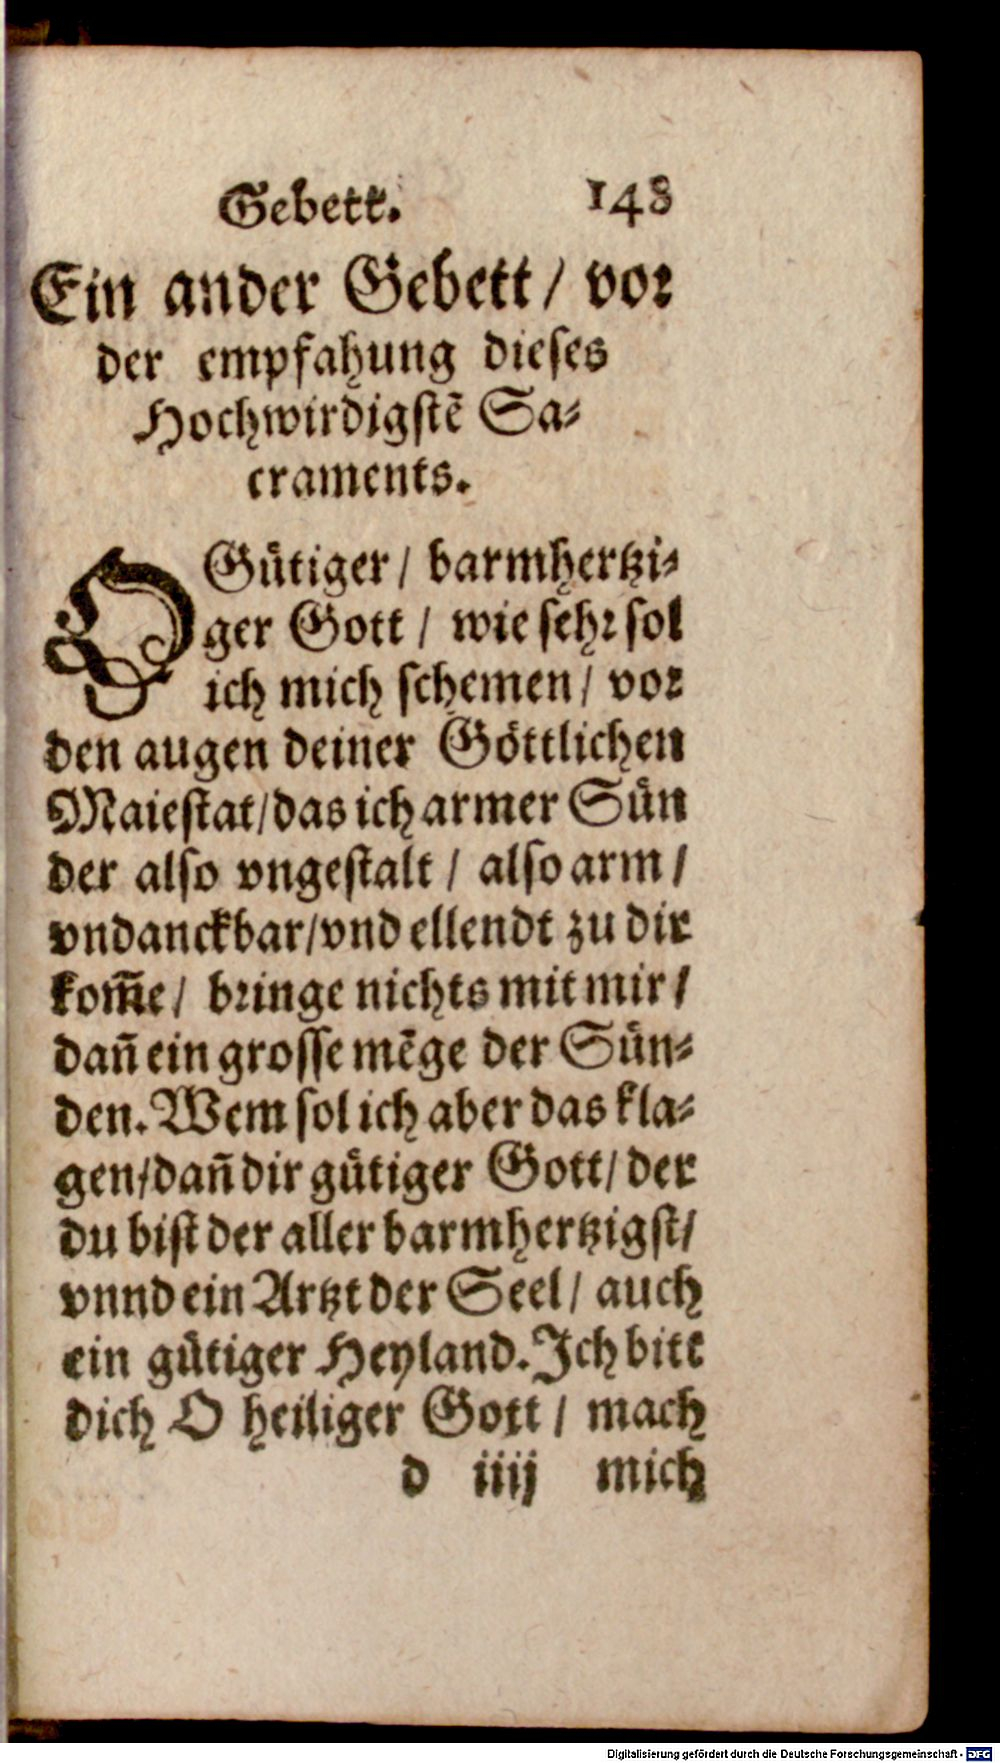 Gebett. 148
Ein ander Gebett / vor
der empfahung dieses
Hochwirdigstẽ Sa-
craments.
O Gütiger / barmhertzi-
ger Gott / wie sehr sol
ich mich schemen / vor
den augen deiner Göttlichen
Maiestat / das ich armer Sün
der also vngestalt / also arm /
vndanckbar / vnd ellendt zu dir
kom̃e / bringe nichts mit mir /
dañ ein grosse mẽge der Sün-
den. Wem sol ich aber das kla-
gen / dañ dir gütiger Gott / der
du bist der aller barmhertzigst /
vnnd ein Artzt der Seel / auch
ein gütiger Heyland. Ich bitt
dich O heiliger Gott / mach
d iiij mich
Digitalisierung gefördert durch die Deutsche Forschungsgemeinschaft - DFG